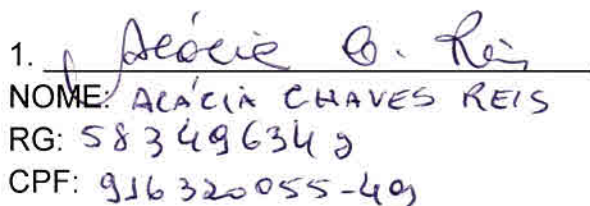 1. Acácia C. Reis
NOME: ACÁCIA CHAVES REIS
RG: 583496349
CPF: 916320055-49